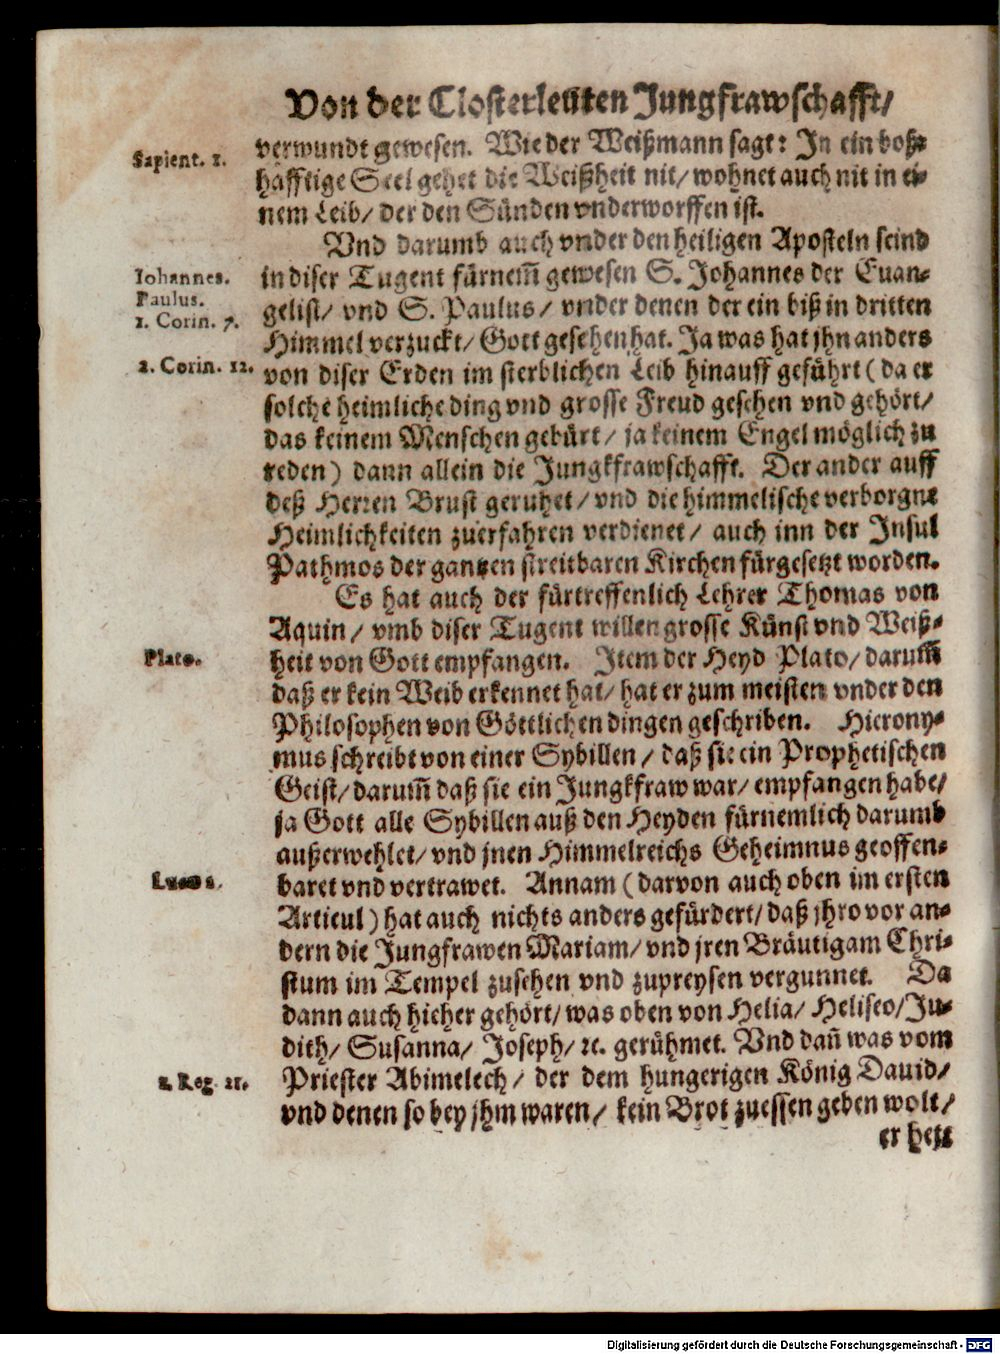 Von der Closterleüten Jungfrawschafft/
Sapient. 1.
verwundt gewesen. Wie der Weißmann sagt: In ein boß-
hafftige Seel gehet die Weißheit nit/ wohnet auch nit in ei-
nem Leib/ der den Sünden vnderworffen ist.
Vnd darumb auch vnder den heiligen Aposteln seind
Iohannes.
in diser Tugent fürnem̃ gewesen S. Johannes der Euan-
Paulus.
1. Corin. 7.
gelist/ vnd S. Paulus/ vnder denen der ein biß in dritten
Himmel verzuckt/ Gott gesehen hat. Ja was hat jhn anders
2. Corin. 12.
von diser Erden im sterblichen Leib hinauff geführt (da er
solche heimliche ding vnd grosse Freud gesehen vnd gehört/
das keinem Menschen gebürt/ ja keinem Engel möglich zu
reden) dann allein die Jungkfrawschafft. Der ander auff
deß Herren Brust geruhet/ vnd die himmelische verborgne
Heimlichkeiten zuerfahren verdienet/ auch inn der Insul
Pathmos der gantzen streitbaren Kirchen fürgesetzt worden.
Es hat auch der fürtreffenlich Lehrer Thomas von
Aquin/ vmb diser Tugent willen grosse Künst vnd Weiß-
Plato.
heit von Gott empfangen. Item der Heyd Plato/ darum̃
daß er kein Weib erkennet hat/ hat er zum meisten vnder den
Philosophen von Göttlichen dingen geschriben. Hierony-
mus schreibt von einer Sybillen/ daß sie ein Prophetischen
Geist/ darum̃ daß sie ein Jungkfraw war/ empfangen habe/
ja Gott alle Sybillen auß den Heyden fürnemlich darumb
außerwehlet/ vnd jnen Himmelreichs Geheimnus geoffen-
Lucæ 2.
baret vnd vertrawet. Annam (darvon auch oben im ersten
Articul) hat auch nichts anders gefürdert/ daß jhro vor an-
dern die Jungfrawen Mariam/ vnd jren Bräutigam Chri-
stum im Tempel zusehen vnd zupreysen vergunnet. Da
dann auch hieher gehört/ was oben von Helia/ Heliseo/ Ju-
dith/ Susanna/ Joseph/ ꝛc. gerühmet. Vnd dañ was vom
Reg. 21.
Priester Abimelech/ der dem hungerigen König Dauid/
vnd denen so bey jhm waren/ kein Brot zuessen geben wolt/
er hett
Digitalisierung gefördert durch die Deutsche Forschungsgemeinschaft - DFG